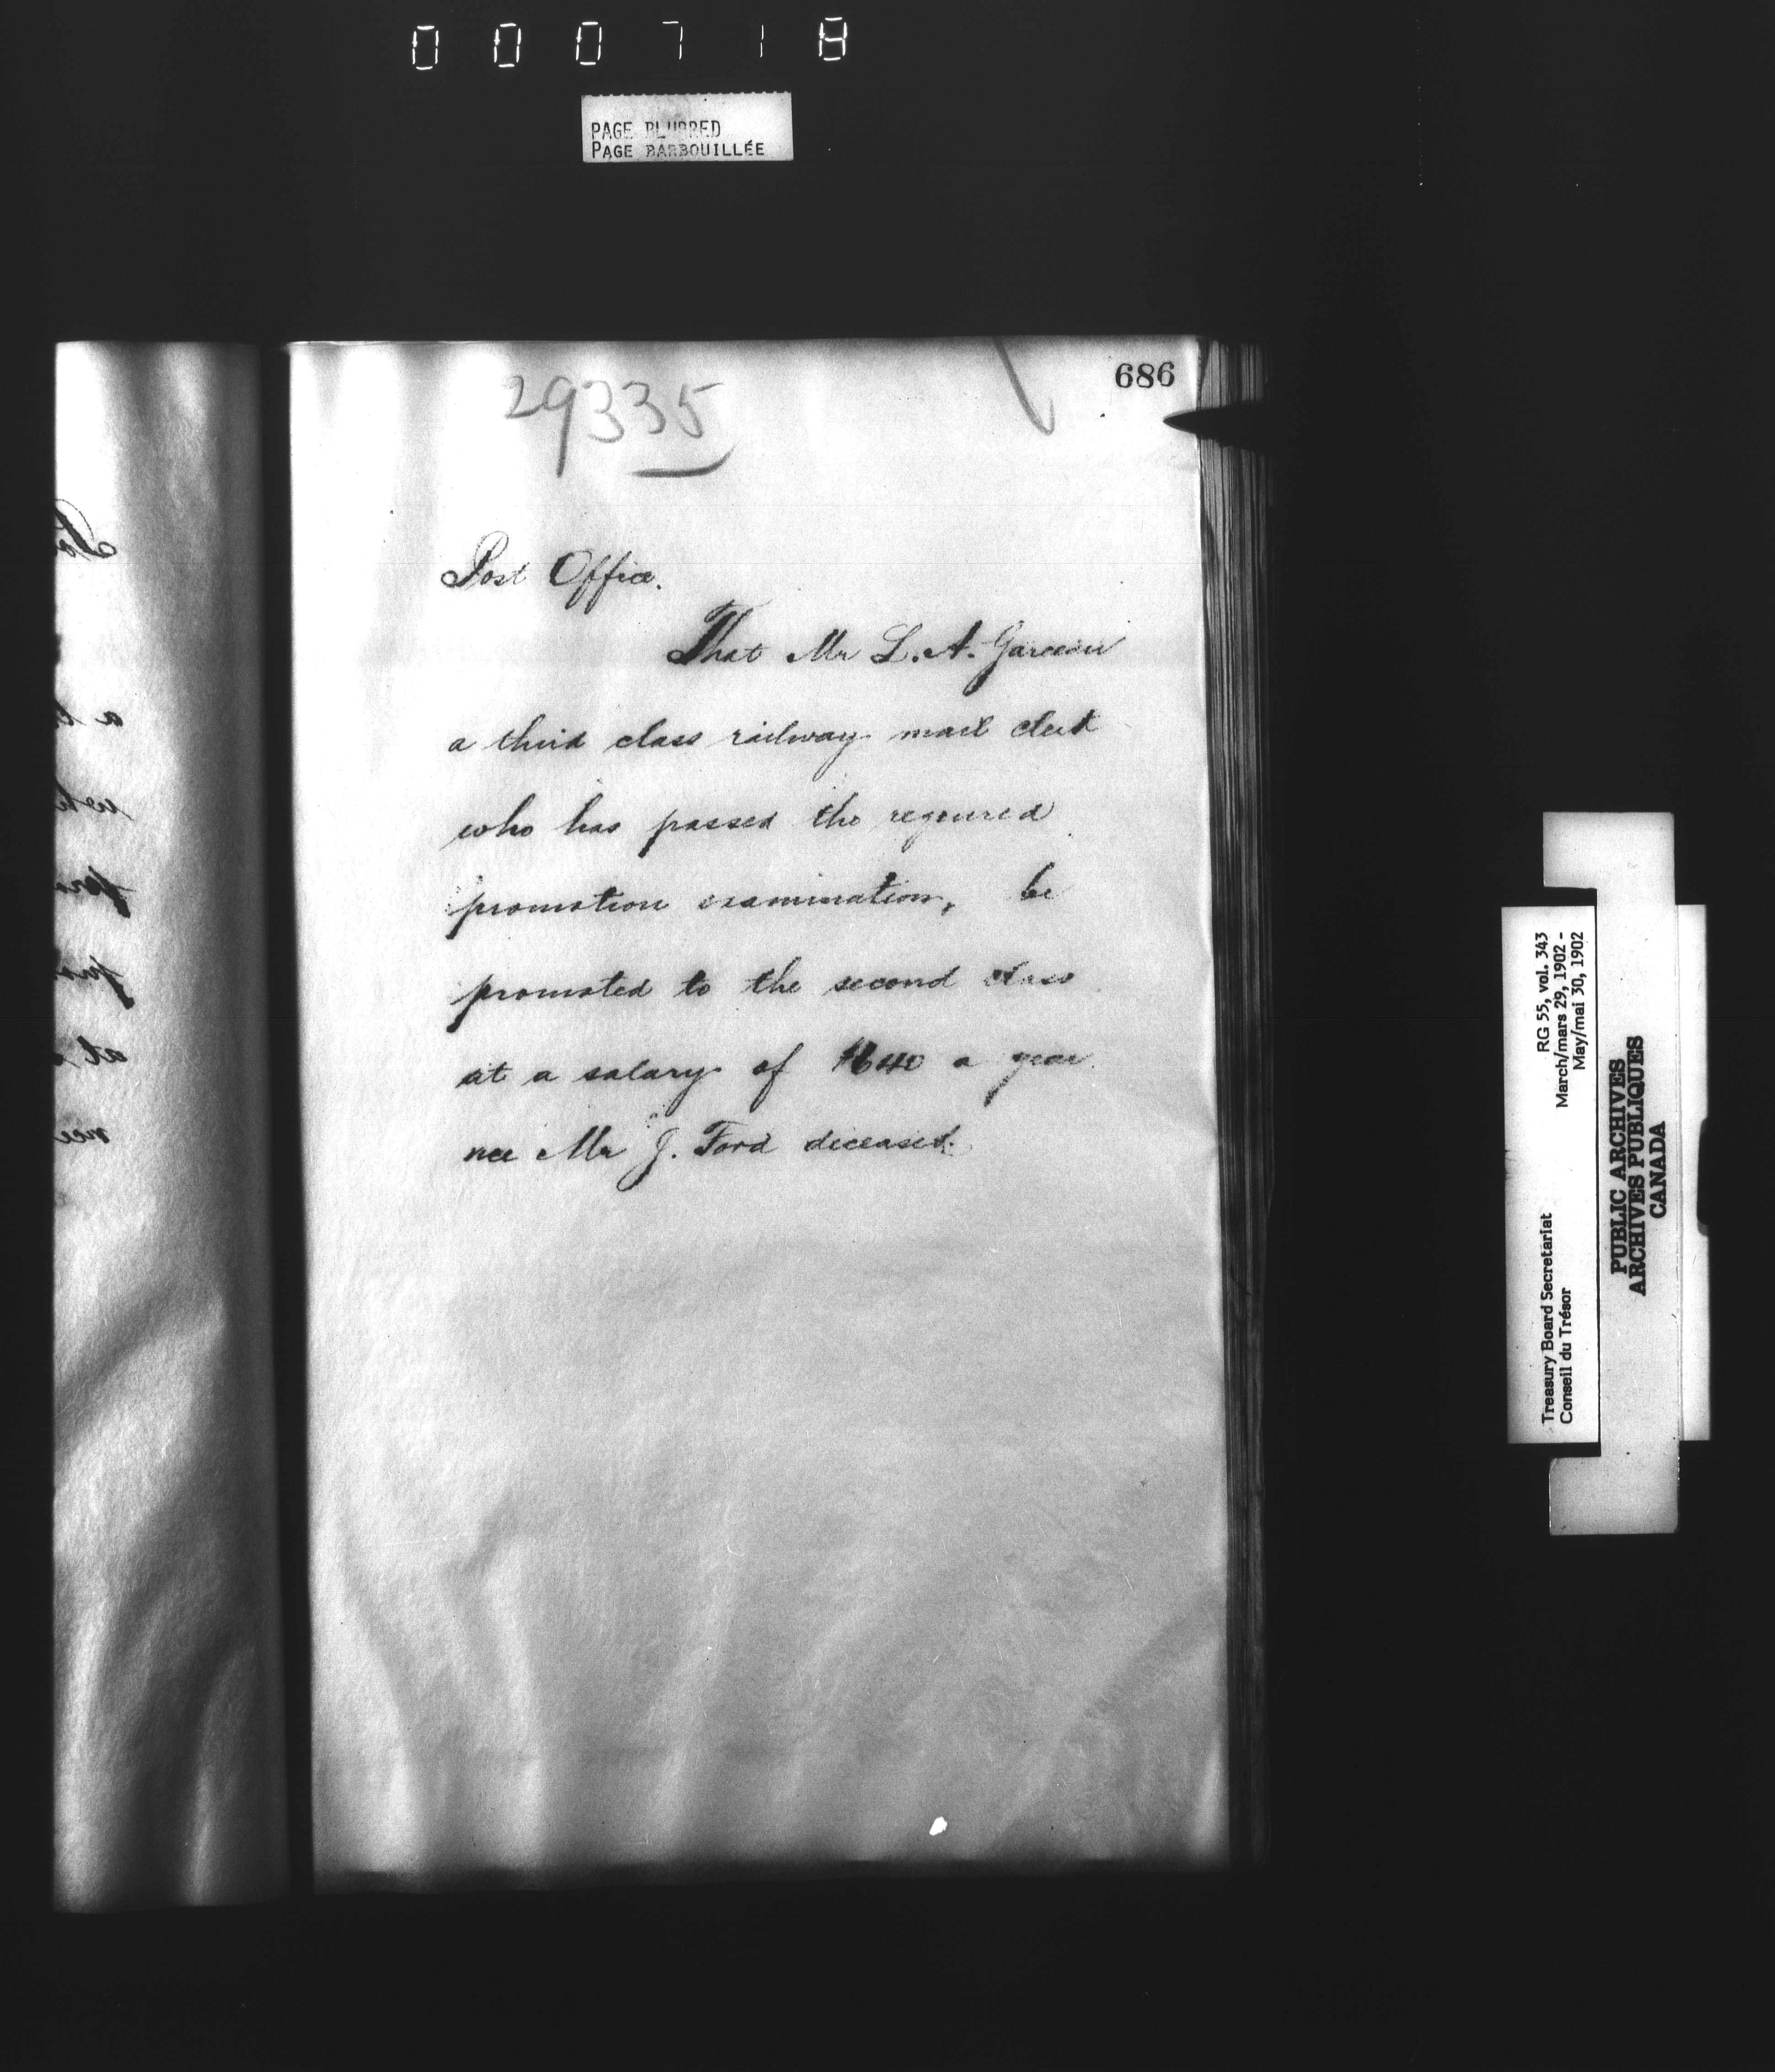 000718
PAGE BLURRED
PAGE BARBOUILLÉE
686
29335
Post Office.
That Mr L. A. Garceau
a third class railway mail clerk
who has passed the required
promotion examination, be
promoted to the second class
at a salary of $640 a year
vice Mr J. Ford deceased.
RG 55, vol. 343
March/mars 29, 1902 -
May/mai 30, 1902
Treasury Board Secretariat
Conseil du Trésor
PUBLIC ARCHIVES
ARCHIVES PUBLIQUES
CANADA